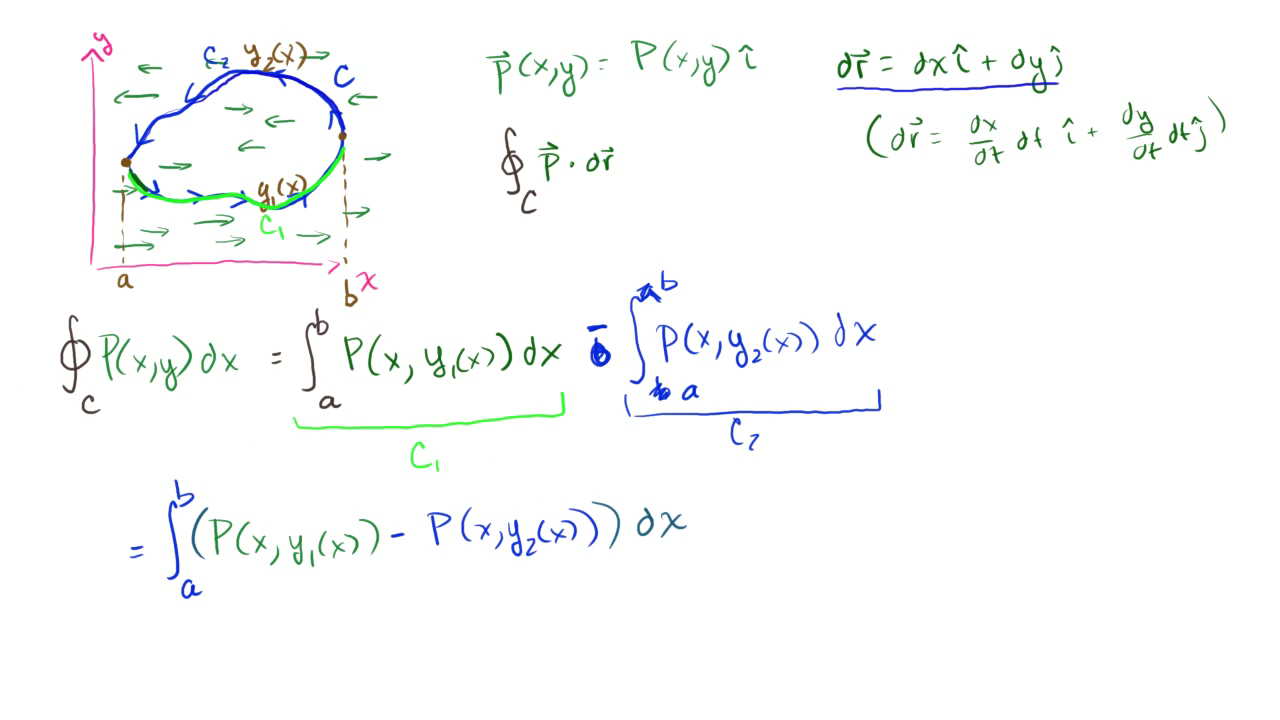 y
C₂ y₂(x)
C
y₁(x)
C₁
a b x
P⃗(x,y) = P(x,y) î
∮_C P⃗ · dr⃗
dr⃗ = dx î + dy ĵ
(dr⃗ = dx/dt dt î + dy/dt dt ĵ)
∮_C P(x,y) dx = ∫_a^b P(x, y₁(x)) dx - ∫_a^b P(x, y₂(x)) dx
C₁ C₂
= ∫_a^b (P(x, y₁(x)) - P(x, y₂(x))) dx